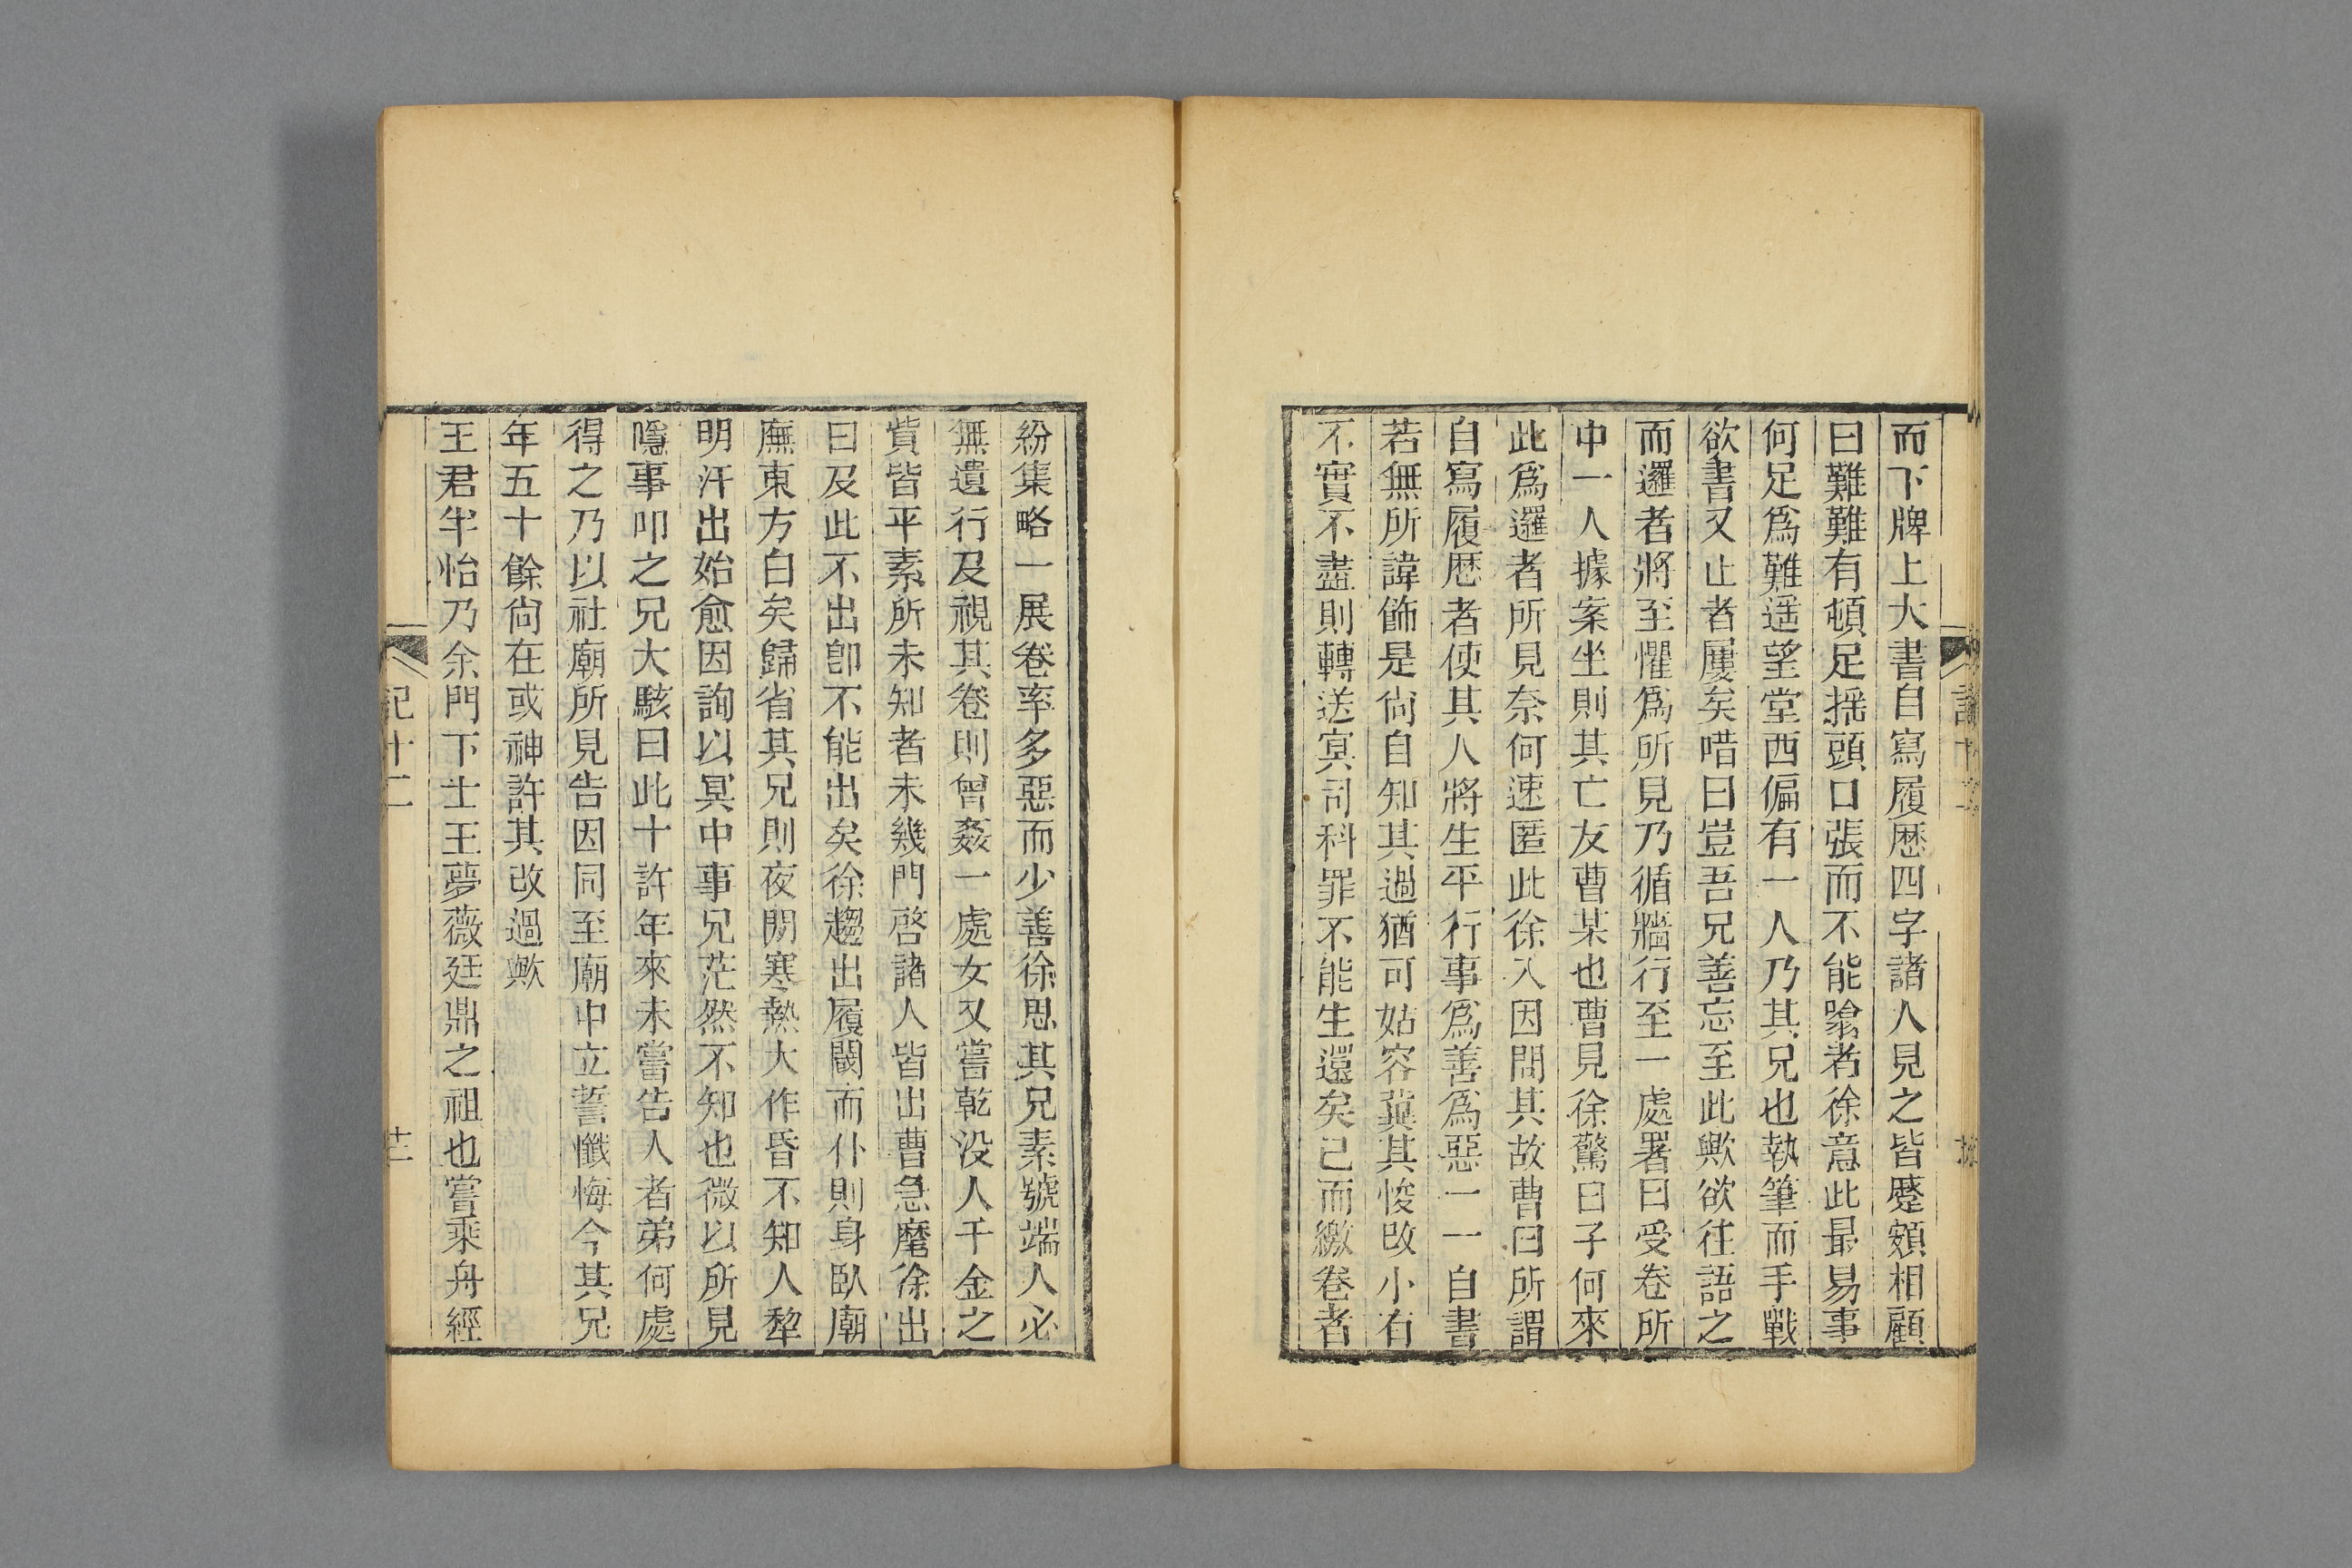 而下牌上大書自寫履歷四字諸人見之皆蹙頞相顧
曰難難有頓足揺頭口張而不能噏者徐意此最易事
何足爲難遥望堂西偏有一人乃其兄也執筆而手戰
欲書又止者屢矣唶曰豈吾兄善忘至此歟欲往語之
而邏者將至懼爲所見乃循牆行至一處署曰受卷所
中一人據案坐則其亡友曹某也曹見徐驚曰子何來
此爲邏者所見奈何速匿此徐入因問其故曹曰所謂
自寫履歷者使其人將生平行事爲善爲惡一一自書
若無所諱飾是尙自知其過猶可姑容冀其悛改小有
不實不盡則轉送冥司科罪不能生還矣已而繳卷者
紛集略一展卷率多惡而少善徐思其兄素號端人必
無遺行及視其卷則曾姦一處女又嘗乾没人千金之
貲皆平素所未知者未幾門啓諸人皆出曹急麾徐出
曰及此不出卽不能出矣徐趨出履閾而仆則身臥廟
廡東方白矣歸省其兄則夜閒寒熱大作昏不知人犂
明汗出始愈因詢以冥中事兄茫然不知也微以所見
隱事叩之兄大駭曰此十許年來未嘗告人者弟何處
得之乃以社廟所見告因同至廟中立誓懺悔今其兄
年五十餘尙在或神許其改過歟
王君半怡乃余門下士王夢薇廷鼎之祖也嘗乘舟經
記十二